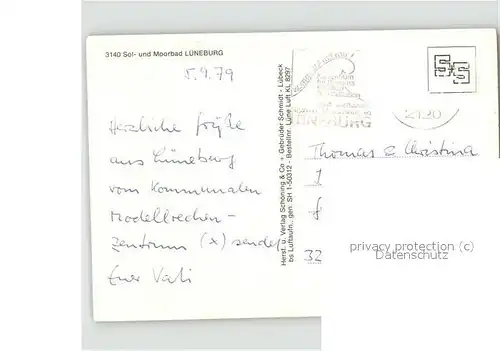 3140 Sol- und Moorbad LÜNEBURG
5.9.79
Herzliche Grüße
aus Lüneburg
vom Kommunalen
Modellrechen-
zentrum (x) sendet
Euer Vati
Herst. u. Verlag Schöning & Co + Gebrüder Schmidt - Lübeck
bs Luftaufn., gen. SH 1-50312 - Bestellnr. Lüne Luft KL 8297
S+S
BURG
2120
Thomas & Christina
32
privacy protection (c)
Datenschutz